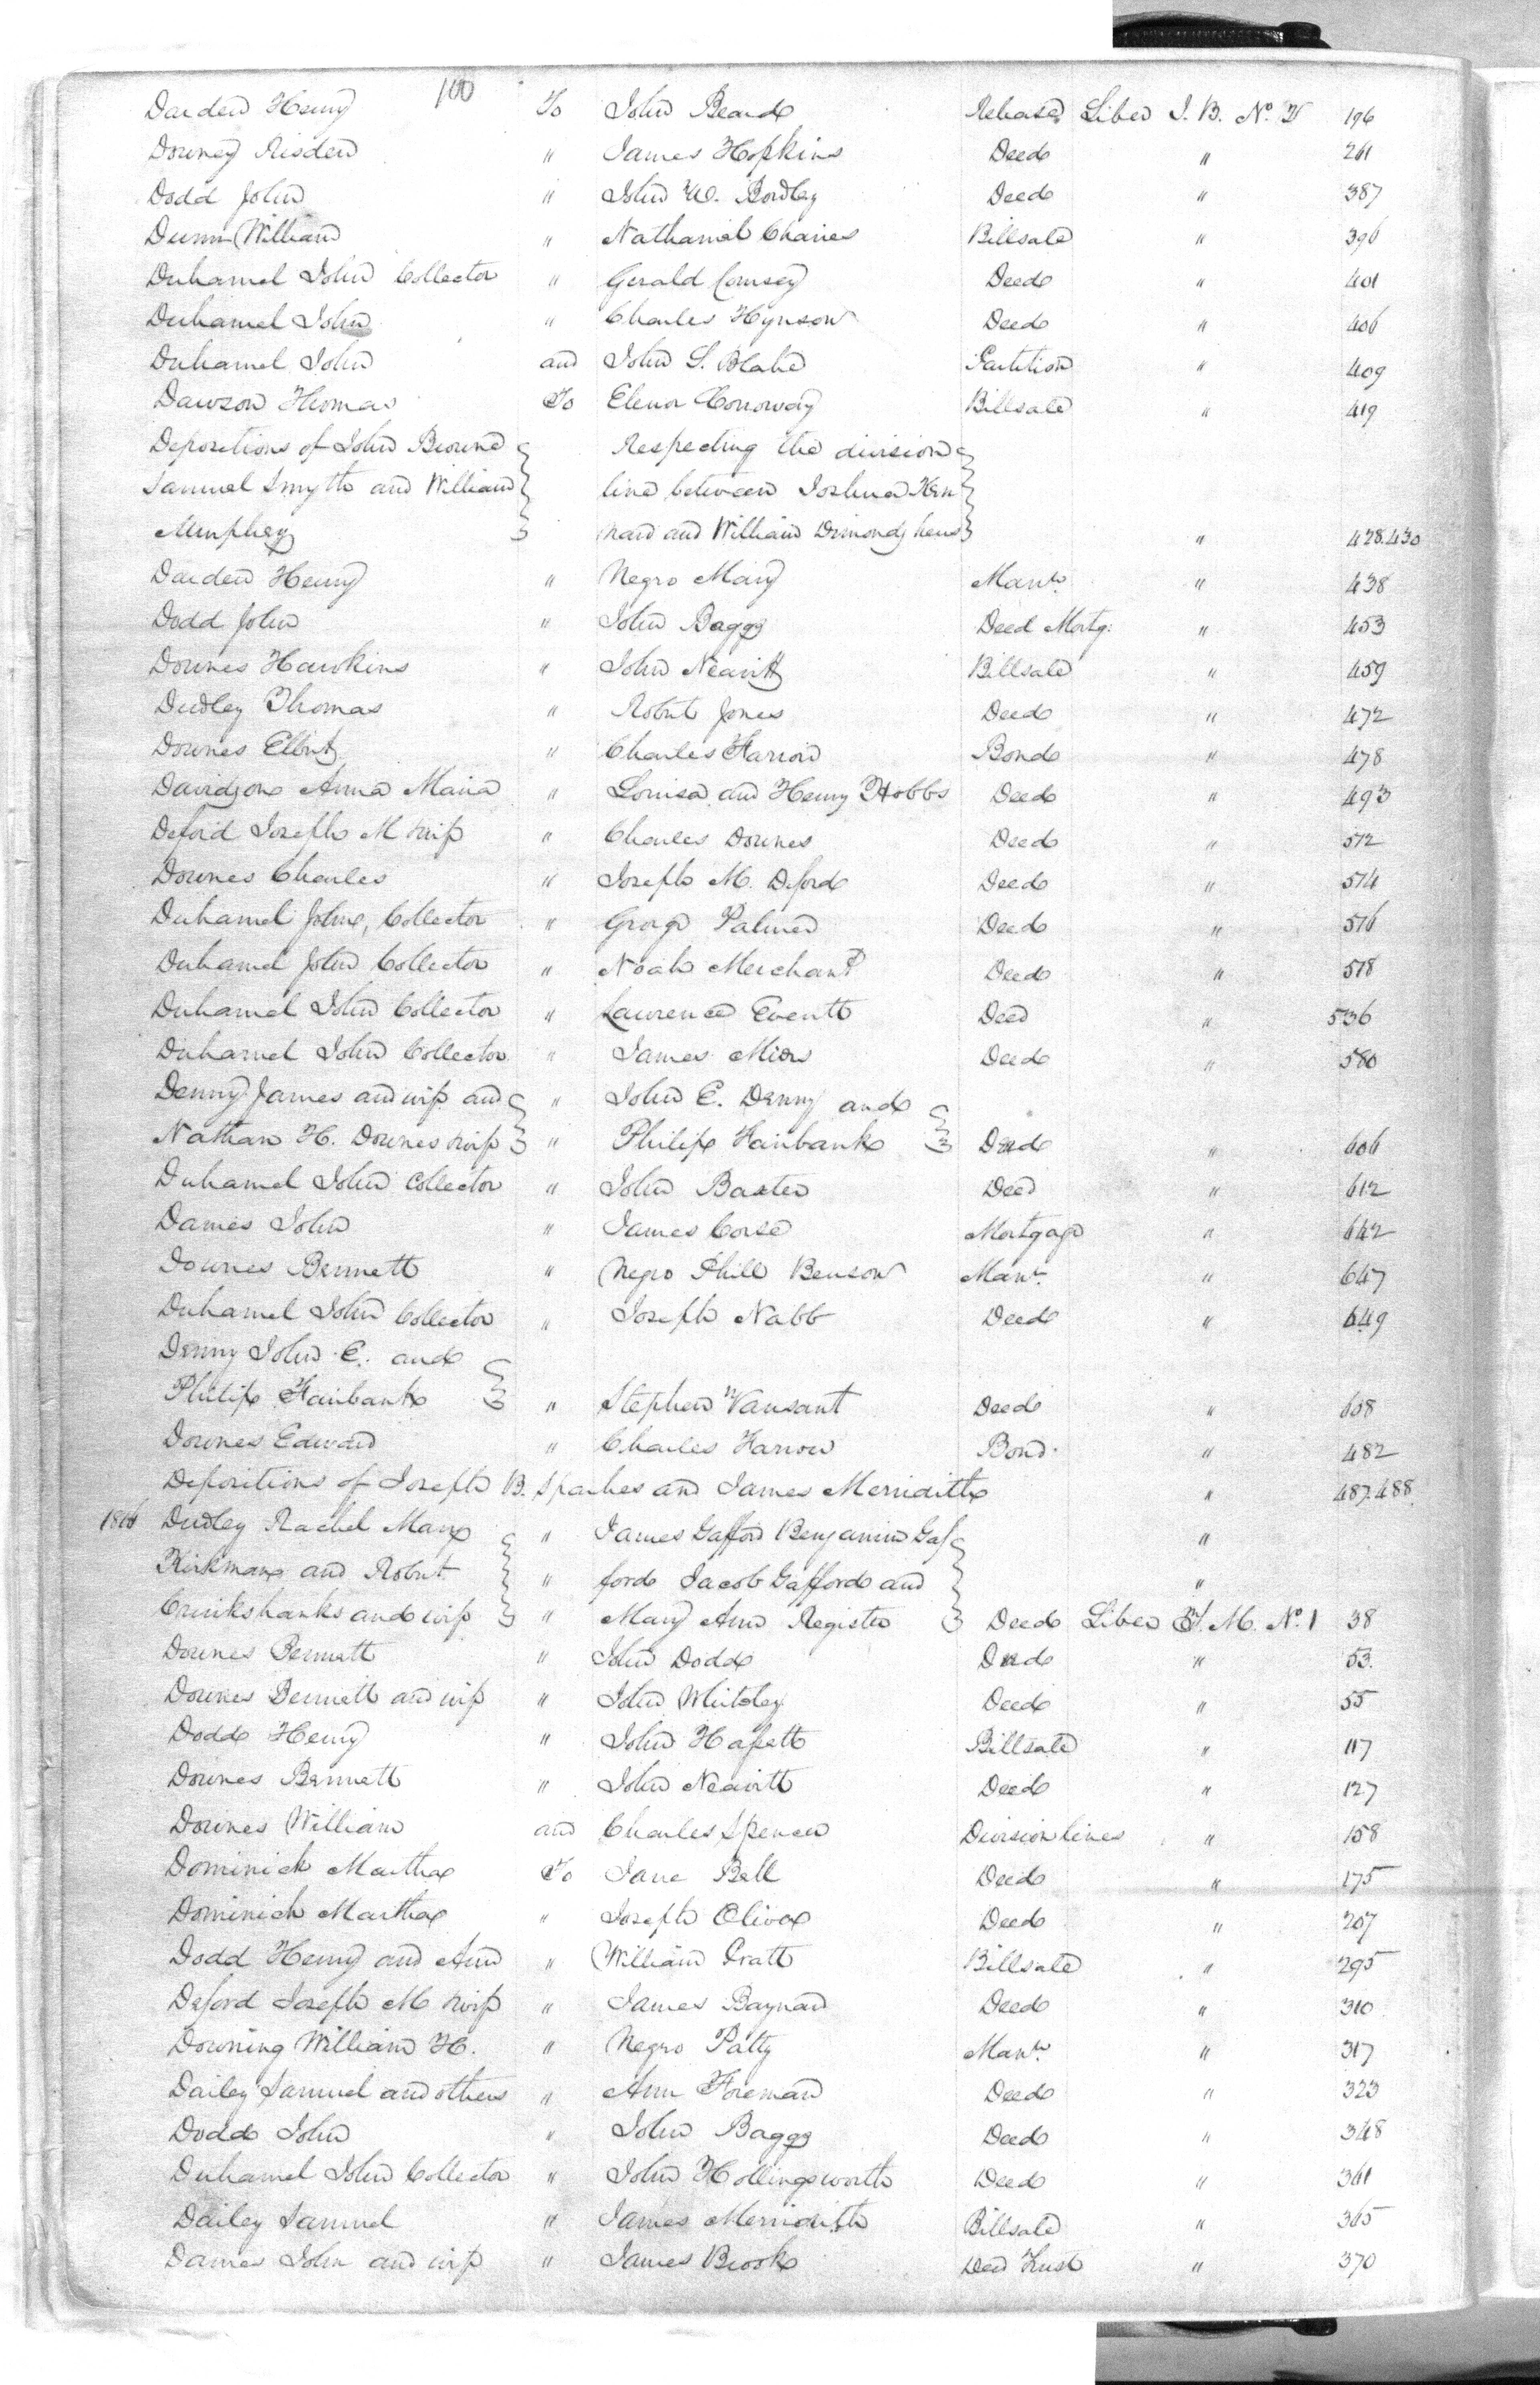 100
Darden Henry To John Beard Release Liber I. B. No. 196
Downey Risden " James Hopkins Deed " 261
Dodd John " John W. Bordley Deed " 387
Dunn William " Nathaniel Chaires Billsale " 396
Duhamel John Collector " Gerald Coursey Deed " 401
Duhamel John " Charles Hynson Deed " 406
Duhamel John and John S. Blake Partition " 409
Dawson Thomas To Elenor Conoway Billsale " 419
Depositions of John Browne Respecting the division
Samuel Smyth and William line between Joshua Ken
Murphey nard and William heirs " 428.430
Darden Henry " Negro Mary Manu. " 438
Dodd John " John Baggs Deed Mortg: " 453
Downes Hawkins " John Neavitt Billsale " 459
Dudley Thomas " Robert Jones Deed " 472
Downes Elbert " Charles Harrow Bond " 478
Davidson Anna Maria " Louisa and Henry Hobbs Deed " 493
Deford Joseph M & wife " Charles Downes Deed " 512
Downes Charles " Joseph M. Deford Deed " 514
Duhamel John, Collector " George Palmer Deed " 516
Duhamel John Collector " Noah Merchant Deed " 518
Duhamel John Collector " Laurence Everett Deed " 536
Duhamel John Collector " James Deed " 580
Denny James and wife and " John E. Denny and
Nathan H. Downes & wife " Philip Fairbank Deed " 606
Duhamel John Collector " John Baxter Deed " 612
Dames John " James Corse Mortgage " 642
Downes Bennett " Negro Phill Benson Manu. " 647
Duhamel John Collector " Joseph Nabb Deed " 649
Denny John E. and
Philip Fairbank " Stephen Vansant Deed " 658
Downes Edward " Charles Harrow Bond " 482
Depositions of Joseph B. Sparkes and James Merridith " 487.488
Dudley Rachel Mary " James Gafford Benjamin Gaf "
Kirkman and Robert " ford Jacob Gafford and "
Cruikshanks and wife " Mary Ann Register Deed Liber T. M. No. 1 38
Downes Bennett " John Dodd Deed " 53.
Downes Bennett and wife " John Whiteley Deed " 55
Dodd Henry " John Billsale " 117
Downes Bennett " John Neavitt Deed " 127
Downes William and Charles Spencer Division lines " 158
Dominick Martha To Jane Bell Deed " 175
Dominick Martha " Joseph Olivo Deed " 207
Dodd Henry and Ann " William Pratt Billsale " 295
Deford Joseph M & wife " James Baynard Deed " 310
Downing William H. " Negro Patty Manu. " 317
Dailey Samuel and others " Ann Foreman Deed " 323
Dodd John " John Baggs Deed " 348
Duhamel John Collector " John Hollingsworth Deed " 361
Dailey Samuel " James Merridith Billsale " 365
Dames John and wife " James Brook Deed Trust " 370